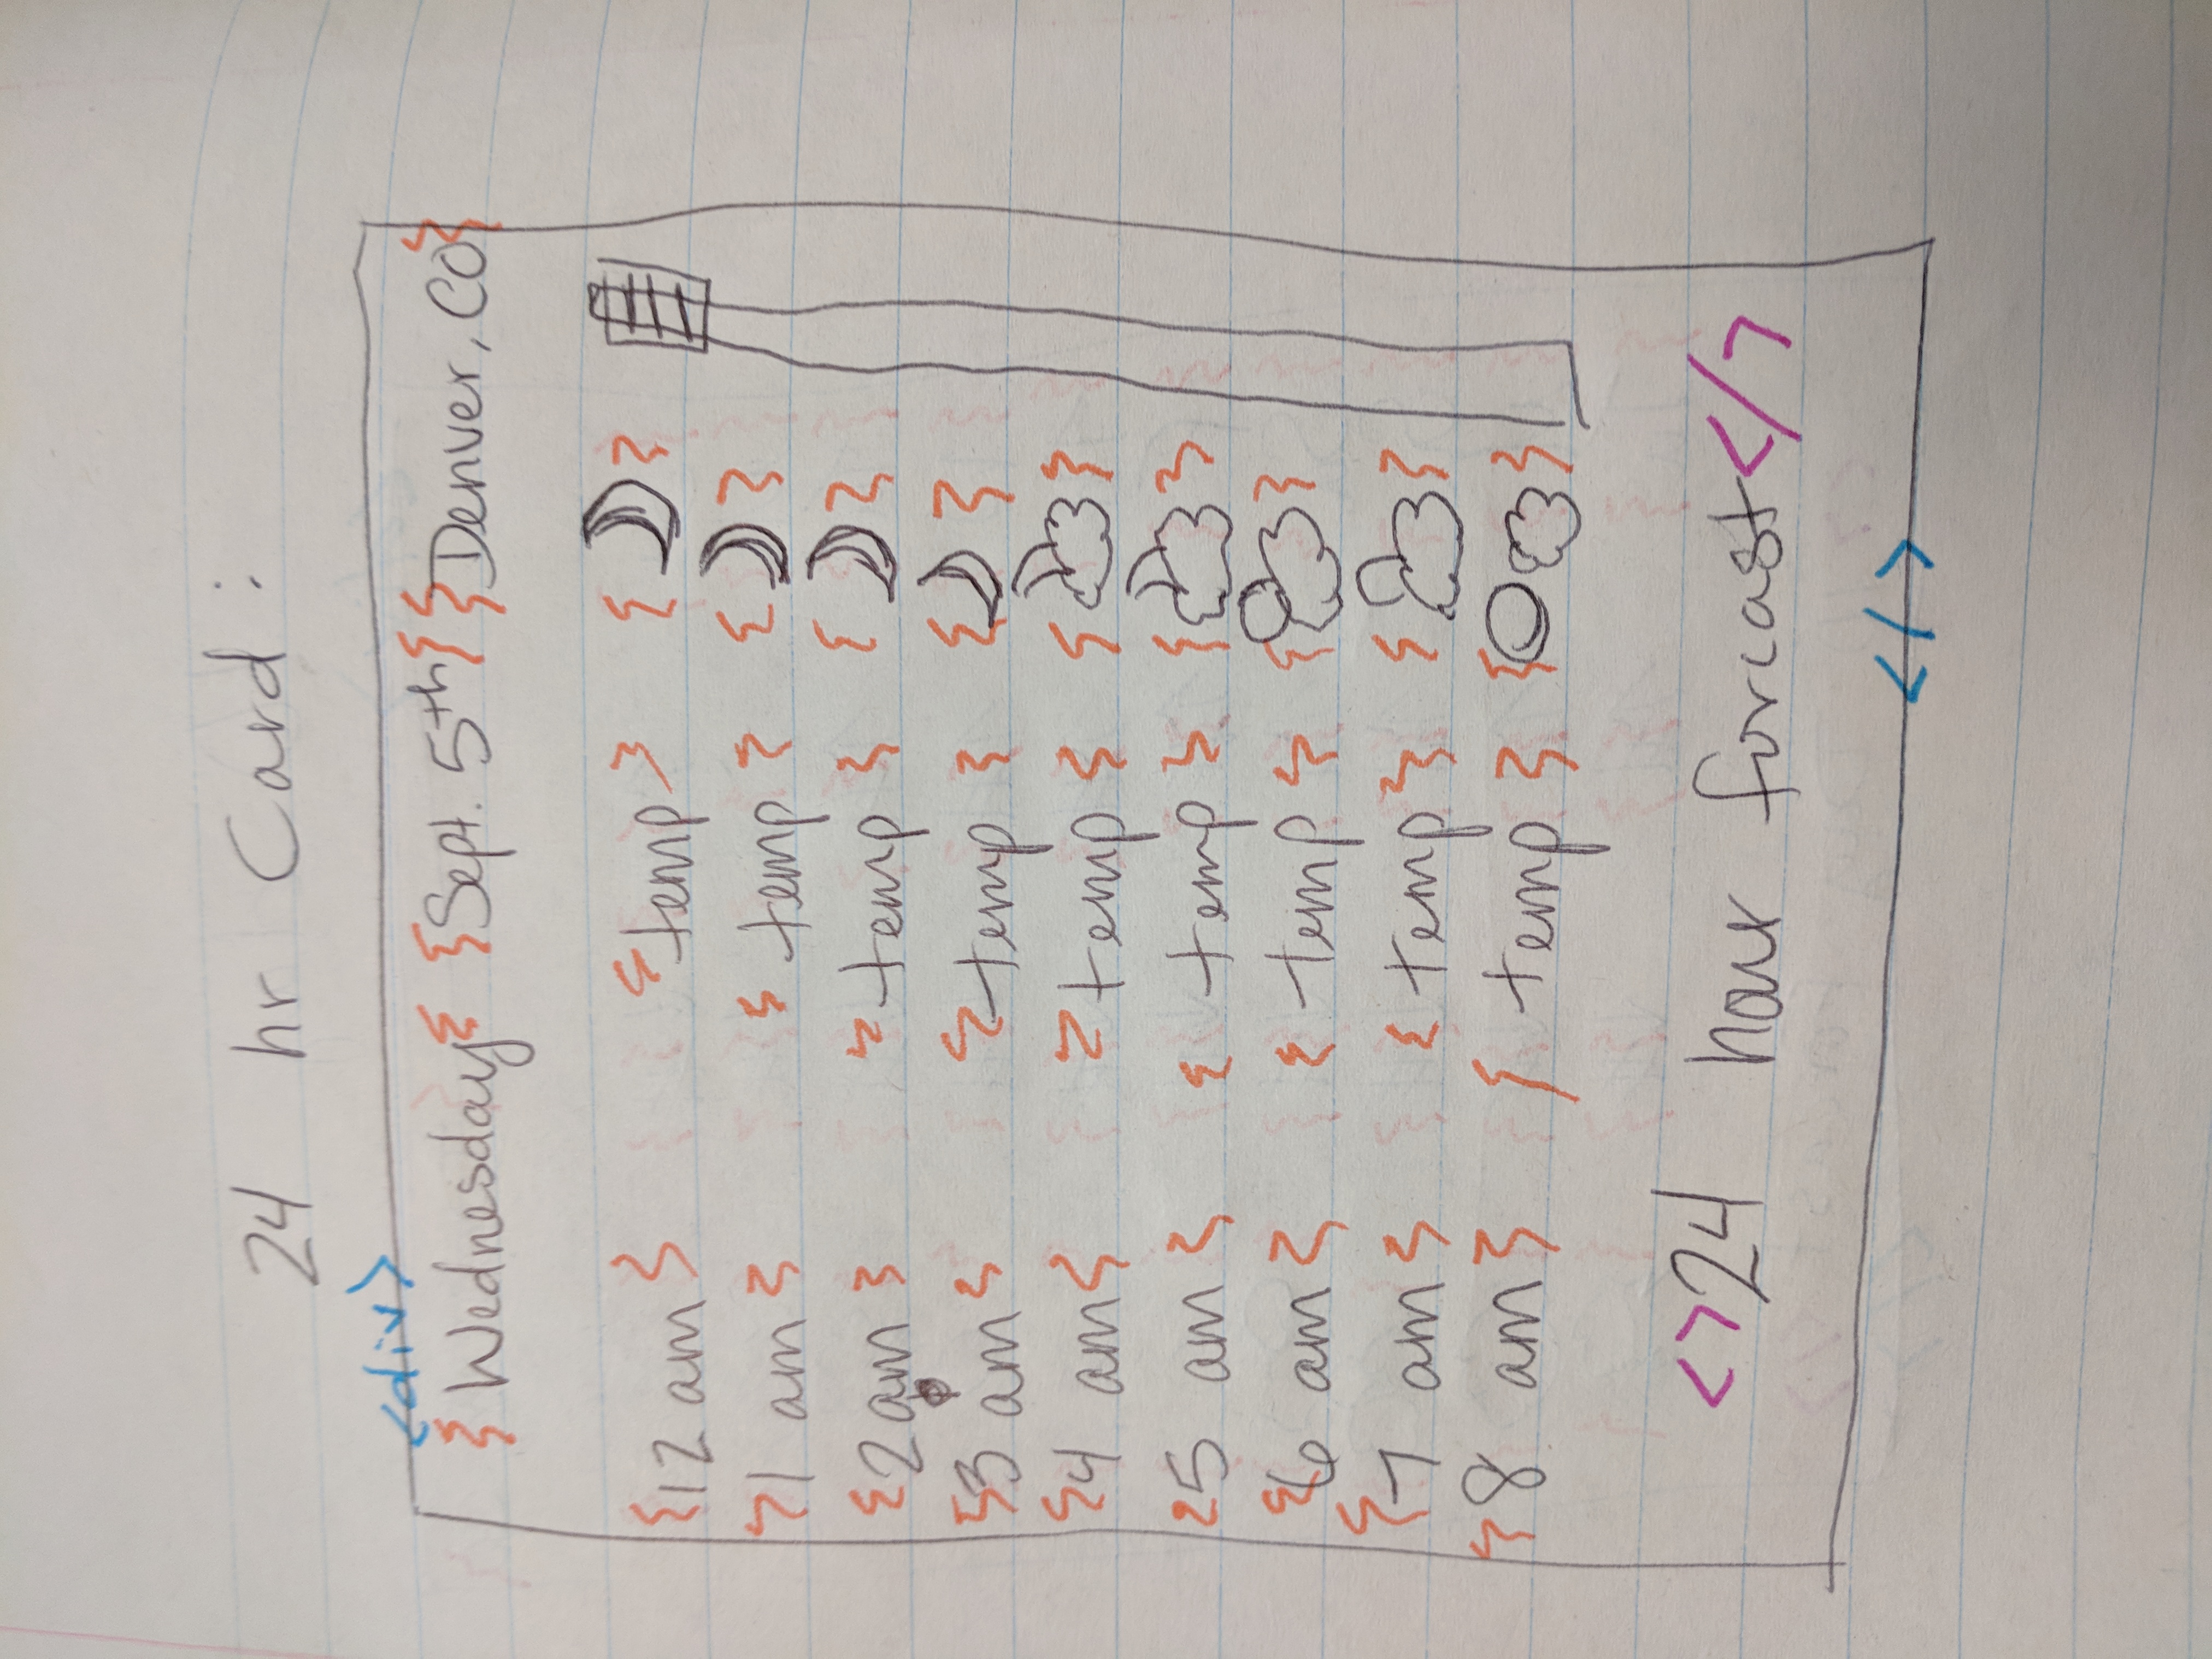 24 hr Card:
<div>
{Wednesday} {Sept. 5th} {Denver, CO}
{12 am} {temp} { }
{1 am} {temp} { }
{2 am} {temp} { }
{3 am} {temp} { }
{4 am} {temp} { }
{5 am} {temp} { }
{6 am} {temp} { }
{7 am} {temp} { }
{8 am} {temp} { }
<>24 hour forcast</>
</>